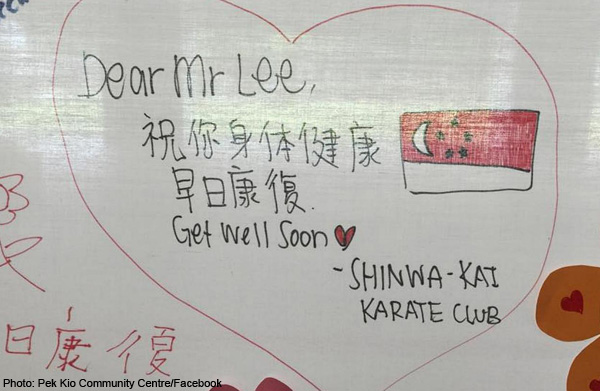 Dear Mr Lee,
祝你身体健康
早日康復.
Get Well Soon
- SHINWA-KAI
KARATE CLUB
日康復
Photo: Pek Kio Community Centre/Facebook